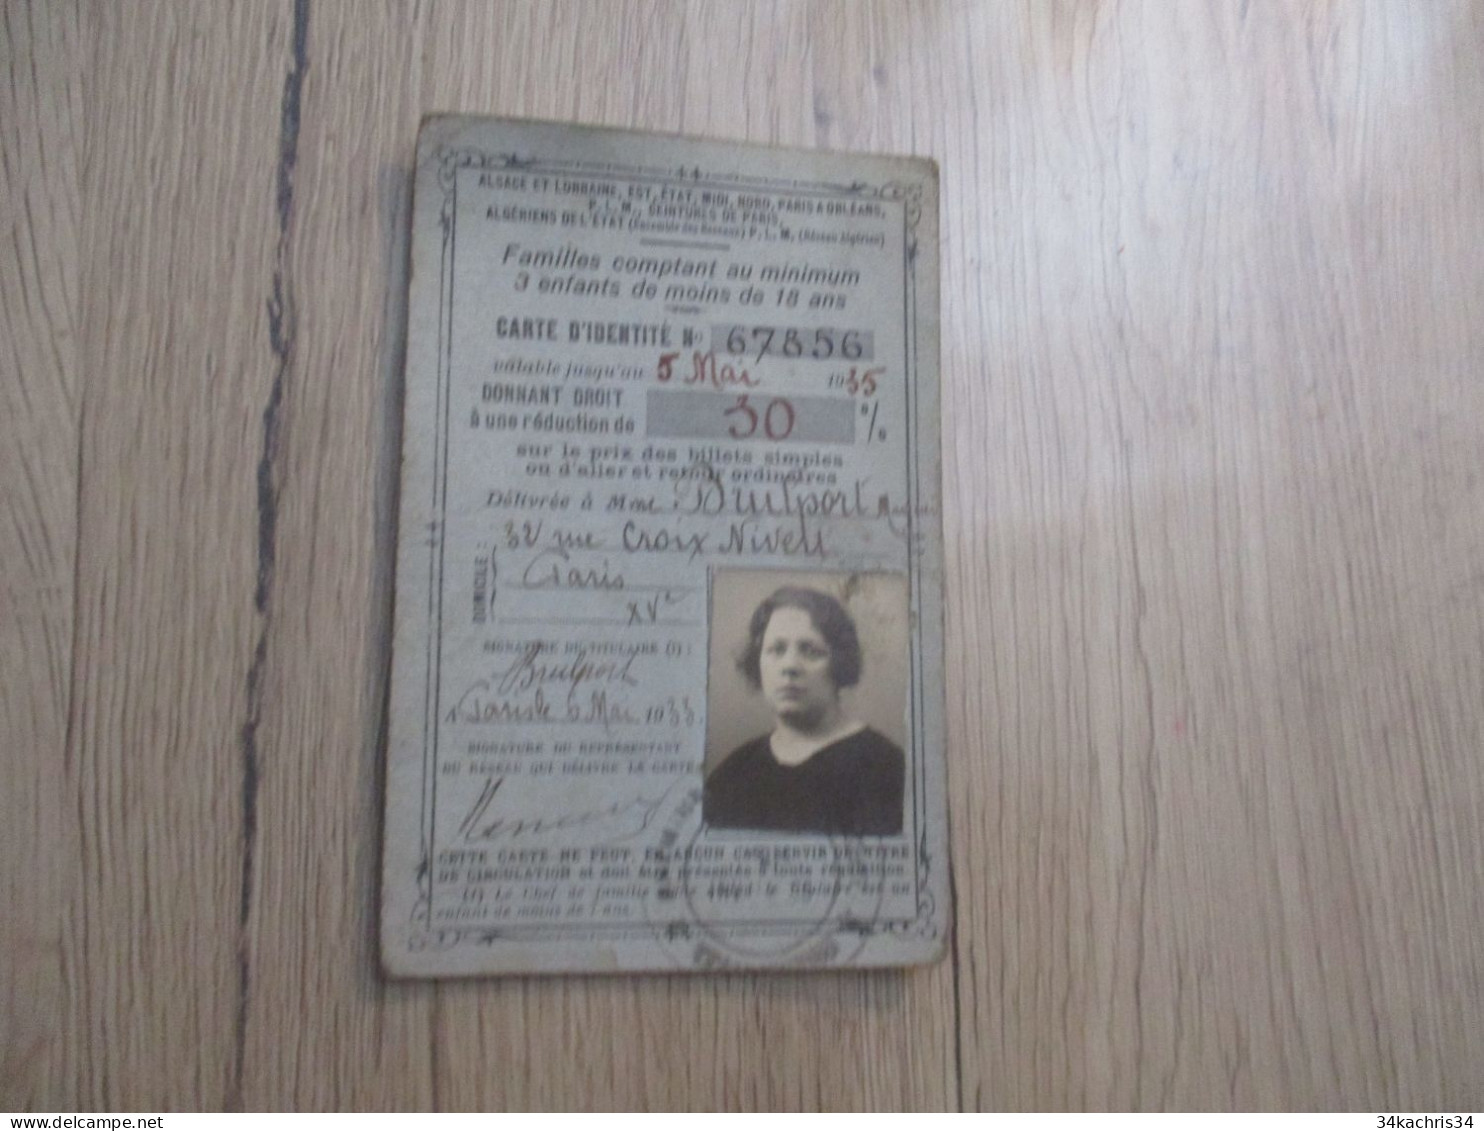 ALSACE ET LORRAINE, EST, ÉTAT, MIDI, NORD, PARIS A ORLÉANS,
P. L. M., CEINTURES DE PARIS,
ALGÉRIENS DE L'ÉTAT (Ensemble des Réseaux) P. L. M. (Réseau Algérien)
Familles comptant au minimum
3 enfants de moins de 18 ans
CARTE D'IDENTITÉ No 67856
valable jusqu'au 5 Mai 1935
DONNANT DROIT
à une réduction de 30 %
sur le prix des billets simples
ou d'aller et retour ordinaires
Délivrée à Mme Brulport
DOMICILE : 32 rue Croix Nivert
Paris
XVe
SIGNATURE DU TITULAIRE (1) :
Brulport
A Paris le 6 Mai 1933.
SIGNATURE DU REPRÉSENTANT
DU RÉSEAU QUI DÉLIVRE LA CARTE
CETTE CARTE NE PEUT, EN AUCUN CAS, SERVIR DE TITRE
DE CIRCULATION et doit être présentée à toute réquisition.
(1) Le Chef de famille signe quand le titulaire est un
enfant de moins de 7 ans.
34kachris34